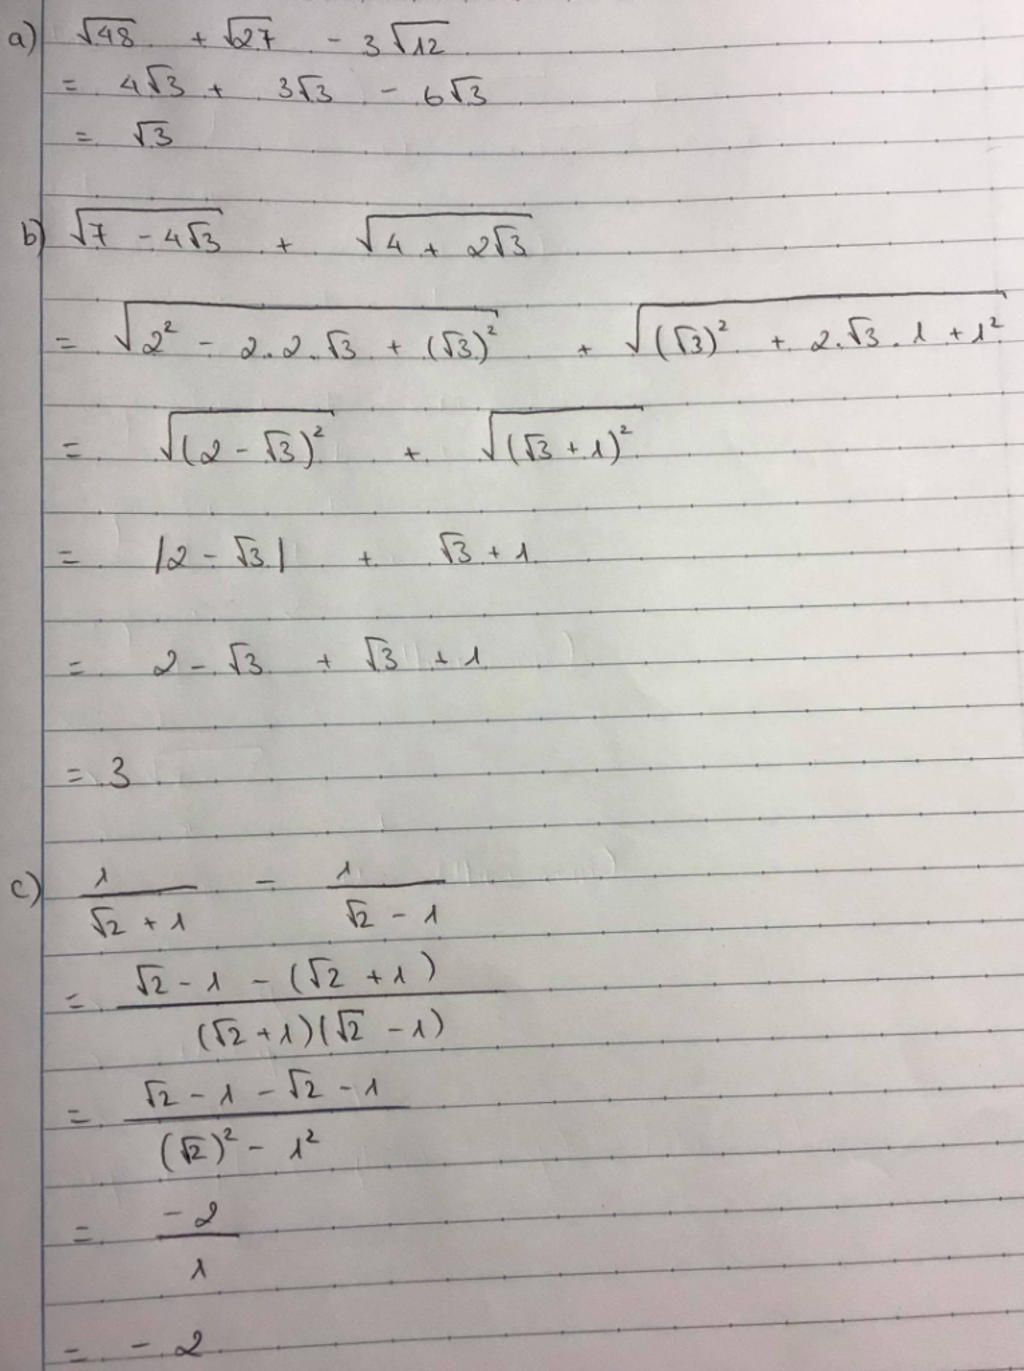 a) √48 + √27 - 3√12
= 4√3 + 3√3 - 6√3
= √3
b) √(7 - 4√3) + √(4 + 2√3)
= √(2² - 2.2.√3 + (√3)²) + √((√3)² + 2.√3.1 + 1²)
= √((2 - √3)²) + √((√3 + 1)²)
= |2 - √3| + √3 + 1
= 2 - √3 + √3 + 1
= 3
c) 1/(√2 + 1) - 1/(√2 - 1)
= (√2 - 1 - (√2 + 1))/((√2 + 1)(√2 - 1))
= (√2 - 1 - √2 - 1)/((√2)² - 1²)
= -2/1
= -2